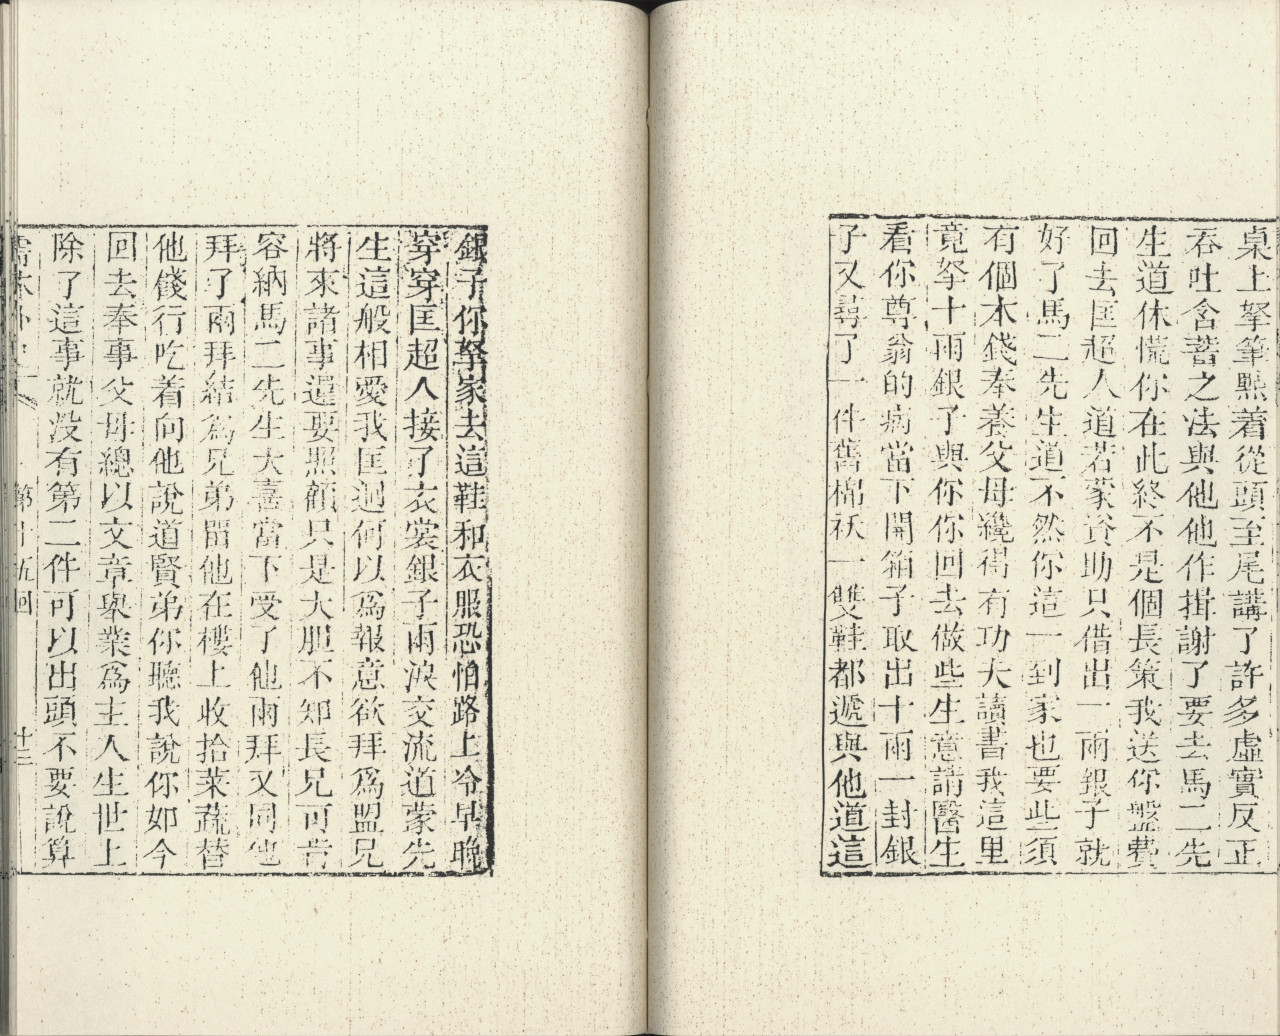 桌上拏筆㸃着從頭至尾講了許多虛實反正
吞吐含蓄之法與他他作揖謝了要去馬二先
生道休慌你在此終不是個長策我送你盤費
回去匡超人道若蒙資助只借出一兩銀子就
好了馬二先生道不然你這一到家也要些須
有個本錢奉養父母纔得有功夫讀書我這里
竟拏十兩銀子與你你回去做些生意請醫生
看你尊翁的病當下開箱子取出十兩一封銀
子又尋了一件舊棉袄一雙鞋都遞與他道這
銀子你拏家去這鞋和衣服恐怕路上冷早晚
穿穿匡超人接了衣裳銀子兩淚交流道蒙先
生這般相愛我匡迥何以爲報意欲拜爲盟兄
將來諸事還要照顧只是大胆不知長兄可肯
容納馬二先生大喜當下受了他兩拜又同他
拜了兩拜結爲兄弟畱他在樓上收拾菜蔬替
他餞行吃着向他說道賢弟你聽我說你如今
回去奉事父母總以文章舉業爲主人生世上
除了這事就没有第二件可以出頭不要說算
儒林外史 第十五回 十三